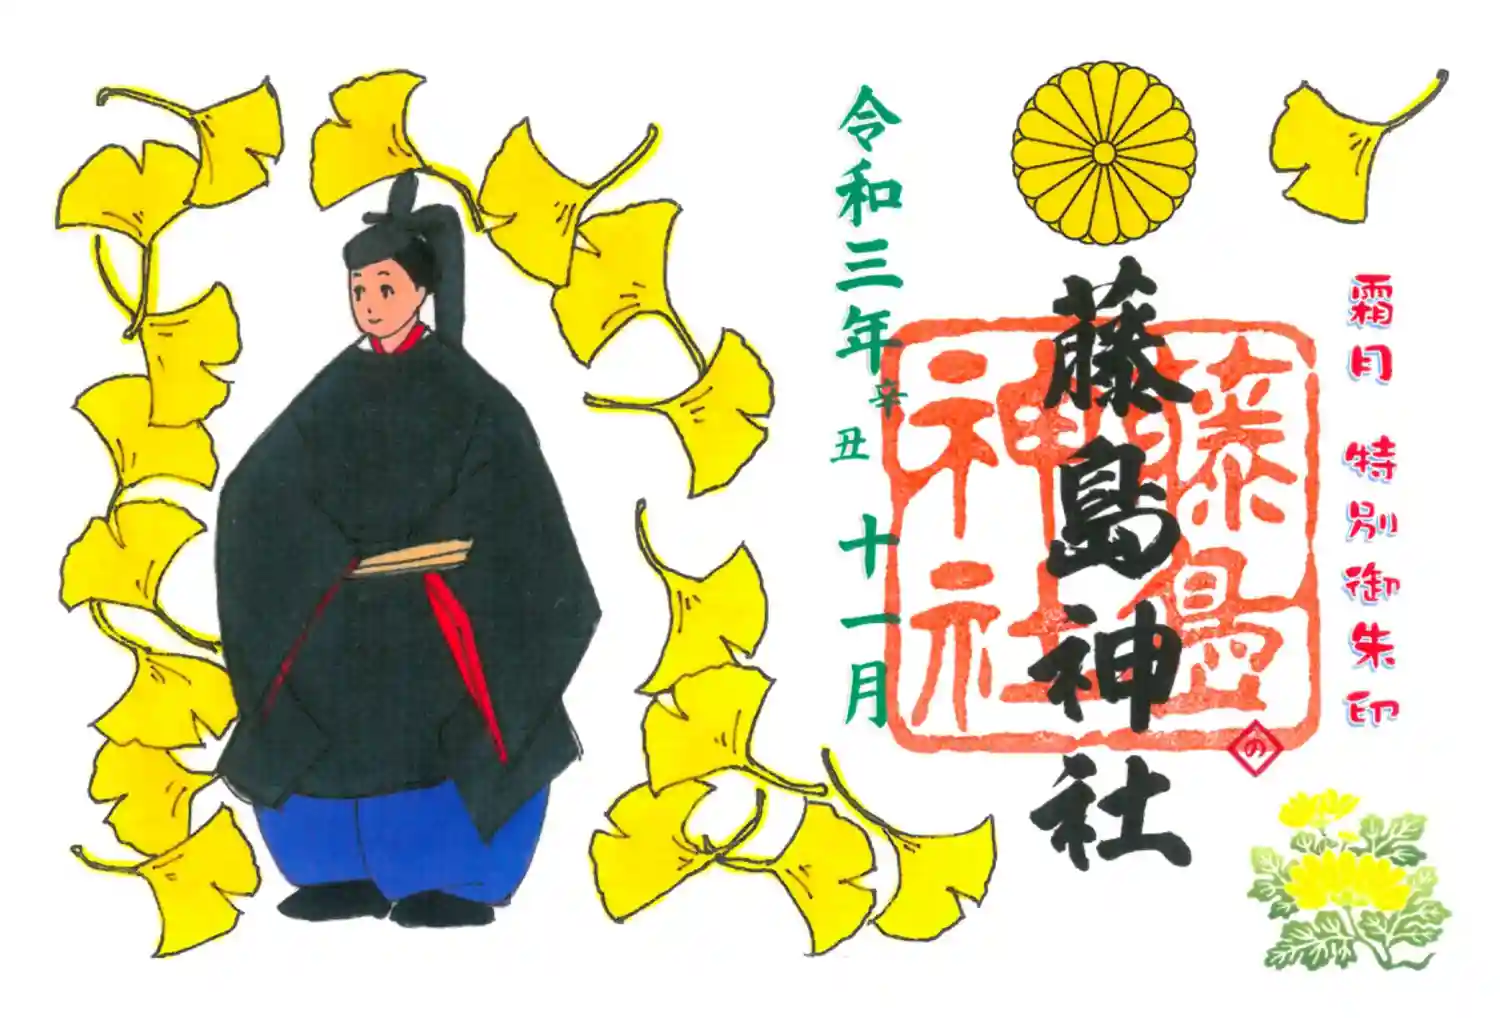 霜月 特別御朱印
藤島神社
藤島
神社
の
令和三年辛丑 十一月